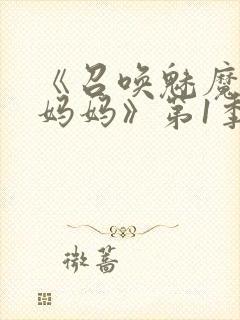 《召唤魅魔
妈妈》第1季
微蔷